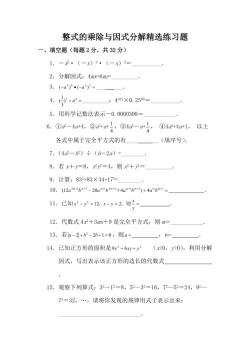 整式的乘除与因式分解精选练习题
一、填空题（每题2分，共32分）
1．－x²·（－x）³·（－x）²＝
2．分解因式：4mx+6my=
3．
4． ；4¹⁰¹×0.25⁹⁹＝
5．用科学记数法表示－0.0000308＝
6．①a²－4a+4，②a²+a+1/4，③4a²－a+1/4，④4a²+4a+1，以上
各式中属于完全平方式的有 （填序号）．
7．(4a²－b²)÷(b－2a)＝
8．若x＋y＝8，x²y²＝4，则x²＋y²＝
9．计算：832+83×34+172=
10．
11．已知 ，则 ＝
12．代数式4x²＋3mx＋9是完全平方式，则m＝
13．若|a－2|+b²－2b+1=0，则a＝ ，b＝
14．已知正方形的面积是9x²+6xy+y² （x>0，y>0），利用分解
因式，写出表示该正方形的边长的代数式
15．观察下列算式：3²—1²＝8，5²—3²＝16，7²—5²＝24，9²—
7²＝32，…，请将你发现的规律用式子表示出来：